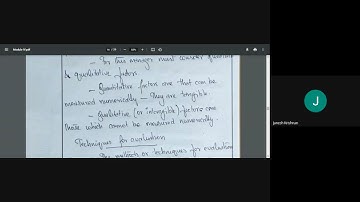 - For this manager must consider quantitative
& qualitative factors
- Quantitative factors are that can be
measured numerically - They are tangible
- Qualitative (or intangible) factors are
those which cannot be measured numerically.
Techniques for evaluation
methods or techniques for evaluation
J